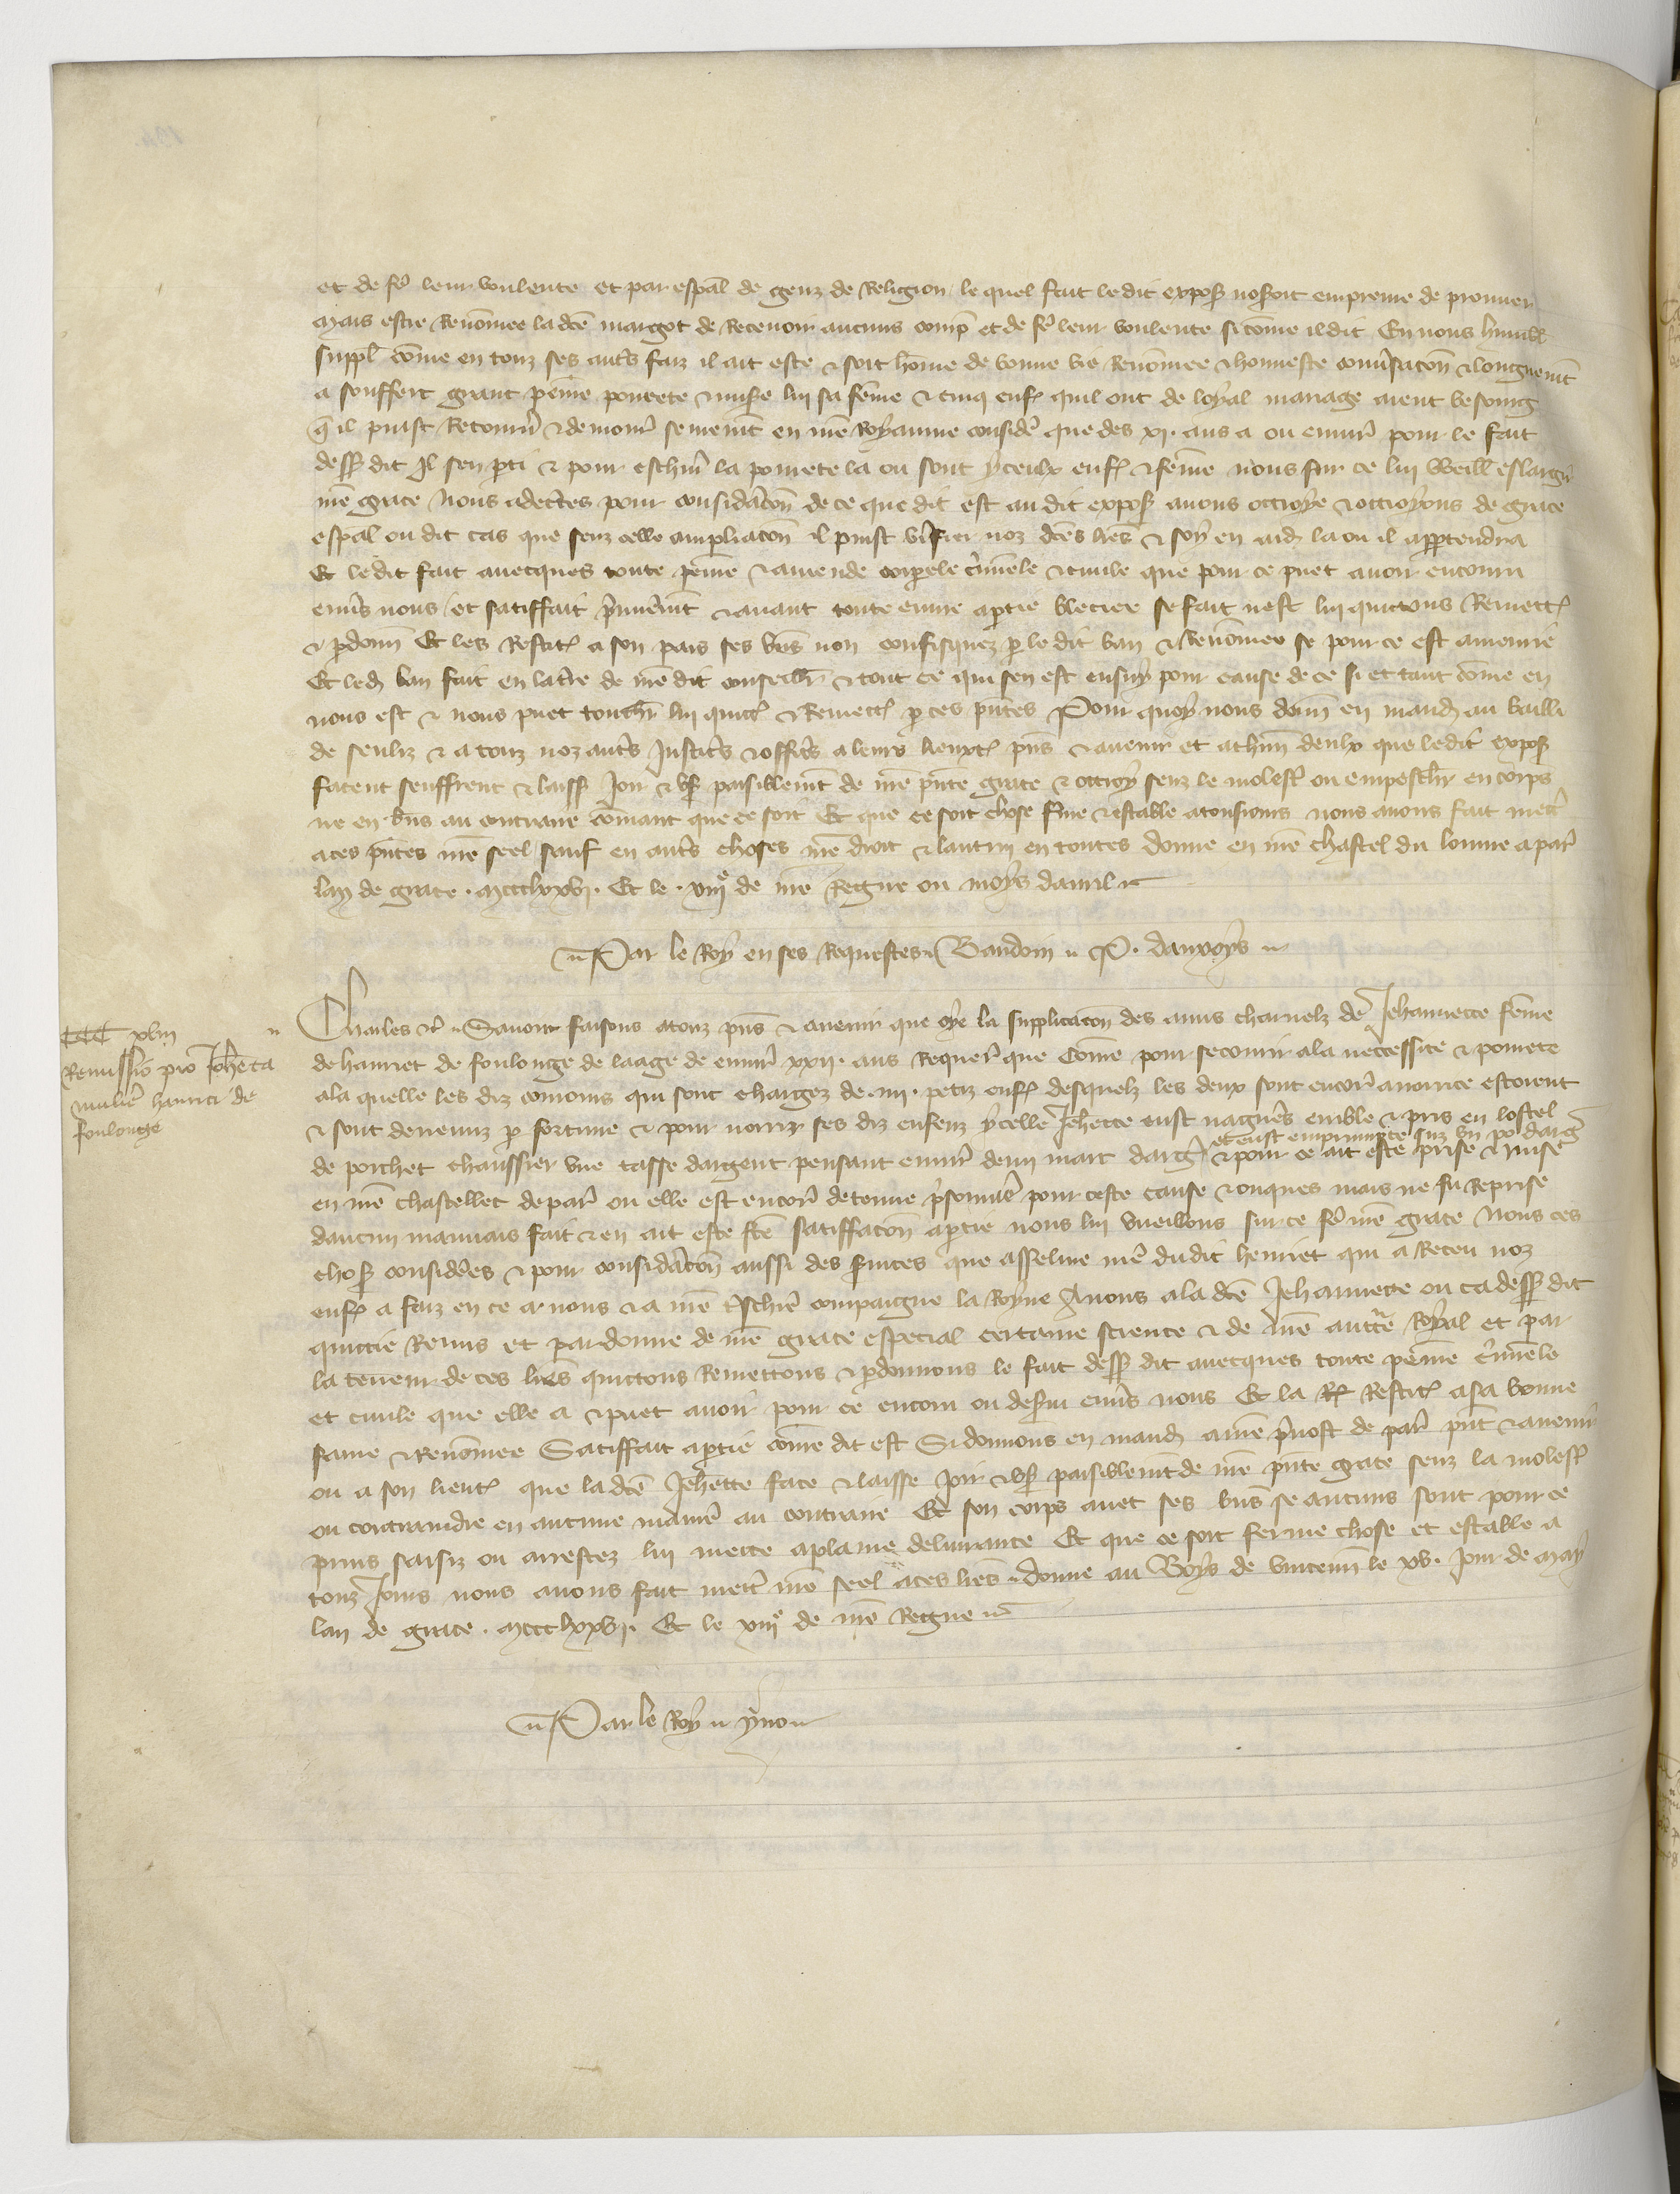 et de fer leur voulente et par espal de genz de Religion le quel fait ledit exposant noseroit emprenre de prouver
Mais estre Renommee la dce margot de Recevoir aucuns comp et de fer leur voulente si come il dit En nous humble
suppl come en touz ses autres faiz il ait este & soit home de bonne vie Renommee & honneste conversacon & longuement
a souffert grant peine povrete & misere lui sa feme & cinq enf quil ont de loyal mariage aient besoing
quil puist Retourner & demourer seurement en nre Royaume consider que des xj ans a ou environ pour le fait
dessus dit Il sen parti & pour eschiver la povrete la ou sont yceulx enf & feme nous sur ce lui Weill eslargir
nre grace Nous adecertes pour consideracon de ce que dit est au dit expos avons ottroye & ottroyons de grace
espal ou dit cas que senz celle ampliacon il puist user noz dces lres & soy en aid la ou il appartendra
Et ledit fait avecques toute peine & amende corporele criminele & civile que pour ce puet avoir encouru
envers nous et satiffait premierement & avant toute euvre a partie bleciee se fait nest lui quictons Remett
& pdonn Et les Restit a son pais ses biens non confisquez p le dit ban & Renommee se pour ce est amenrie
Et led ban fait en la terre de nre dit conseiller & tout ce qui sen est ensuy pour cause de ce si et tant come en
nous est & nous puet toucher lui quict & Remett p ces pntes Pour quoy nous donn en mand au bailli
de senliz & a touz noz autres Justic & offic a leurs lieuxt pns & avenir et a chun deulx que ledit expos
facent seuffrent & laiss Joir & us paisiblement de nre pnte grace & ottroy senz le molest ou empescher en corps
ne en biens au contraire comant que ce soit Et que ce soit chose ferme & estable a tousjours nous avons fait mettre
a ces pntes nre seel sauf en autres choses nre droit & lautrui en toutes donne en nre chastel du louvre a par
lan de grace . mccclxxvj . Et le . xiije de nre Regne ou moys davril
Par le Roy en ses Requestes Baudoin P. danvoys
CCC xlvij
Remissio pro Johanneta
muliere hanrici de
foulonge
Charles etc Savoir faisons a touz pns & avenir que oye la supplicacon des amis charnelz de Jehannette feme
de hanriet de foulonge de laage de environ xxij . ans Requer que Come pour secourir a la neccessite & povrete
a la quelle les diz conjoins qui sont chargez de . iiij . petiz enf desquelz les deux sont encore a nourrice estoient
& sont devenuz p fortune & pour nourrir ses diz enfenz ycelle Jehette eust nagueres emble & pris en lostel
de porchet chaussier une tasse dargent pensant environ demi marc darg et eust emprunpte suz un po darg & pour ce ait este prise & mise
en nre chastellet de par ou elle est encore detenue prisonniere pour ceste cause & onques mais ne fu Reprise
daucun mauvais fait & en ait este fce satiffacon a partie nous lui vueillons sur ce fer nre grace Nous ces
chos considerees & pour consideracon aussi des services que asseline mere dudit henriet qui a Receu noz
enf a faiz en ce a nous & a nre treschiere compaigne la Royne Avons a la dce Jehannette ou cas dess dit
quictie Remis et pardonne de nre grace especial certaine science & de nre auctte Royal et par
la teneur de ces lres quictons Remettons & pdonnons le fait dess dit avecques toute peine criminele
et civile que elle a & puet avoir pour ce encouru ou desservi envers nous Et la Restit a sa bonne
fame & Renommee Satiffait a partie come dit est Si donnons en mand a nre prevost de par pnt & avenir
ou a son lieut que la dce Jehette face & laisse Joir & us paisiblement de nre pnte grace senz la molest
ou contraindre en aucune maniere au contraire Et son corps avec ses biens se aucuns sont pour ce
prins saisiz ou arrestez lui mette a plaine delivrance Et que ce soit ferme chose et estable a
touz Jours nous avons fait mettre nre seel a ces lres donne au Boys de vincenn le xv . Jour de May
lan de grace . mccclxxvj . Et le xiije de nre Regne
Par le Roy yvo